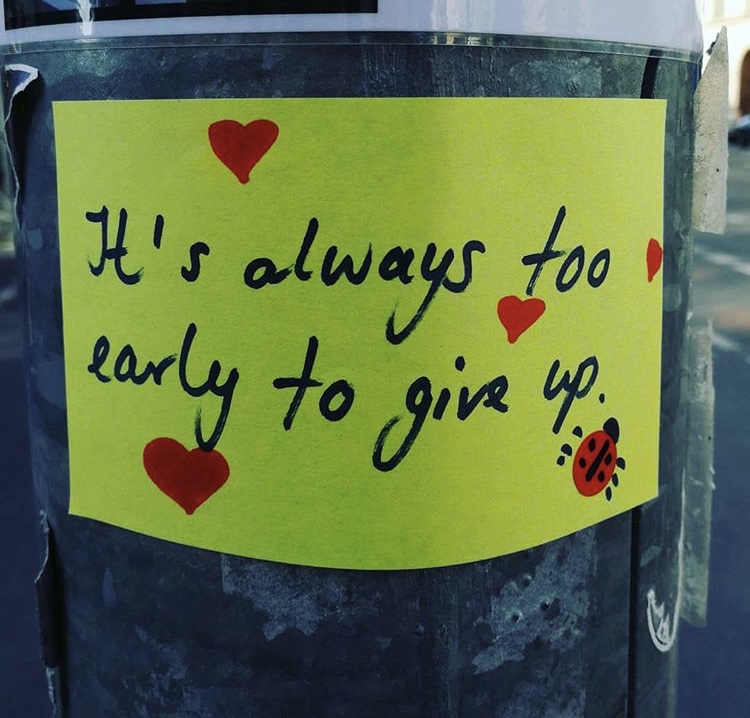 It's always too
early to give up.